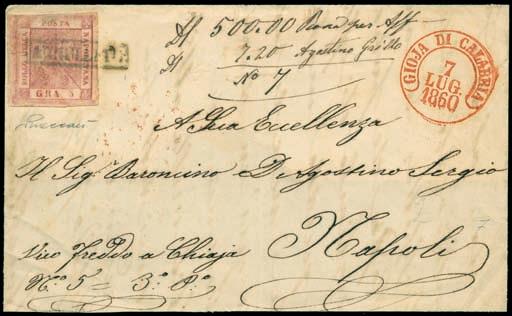 POSTA
BOLLO DELLA
NAPOLETANA
GRA 5
ANNULLATO
500.00
7.20 Agostino Grillo
No 7
GIOJA DI CALABRIA
7
LUG.
1860
A Sua Eccellenza
Il Sig. Baroncino D. Agostino Sergio
Vico Freddo a Chiaja Napoli
N.° 5 = 3.° P.°